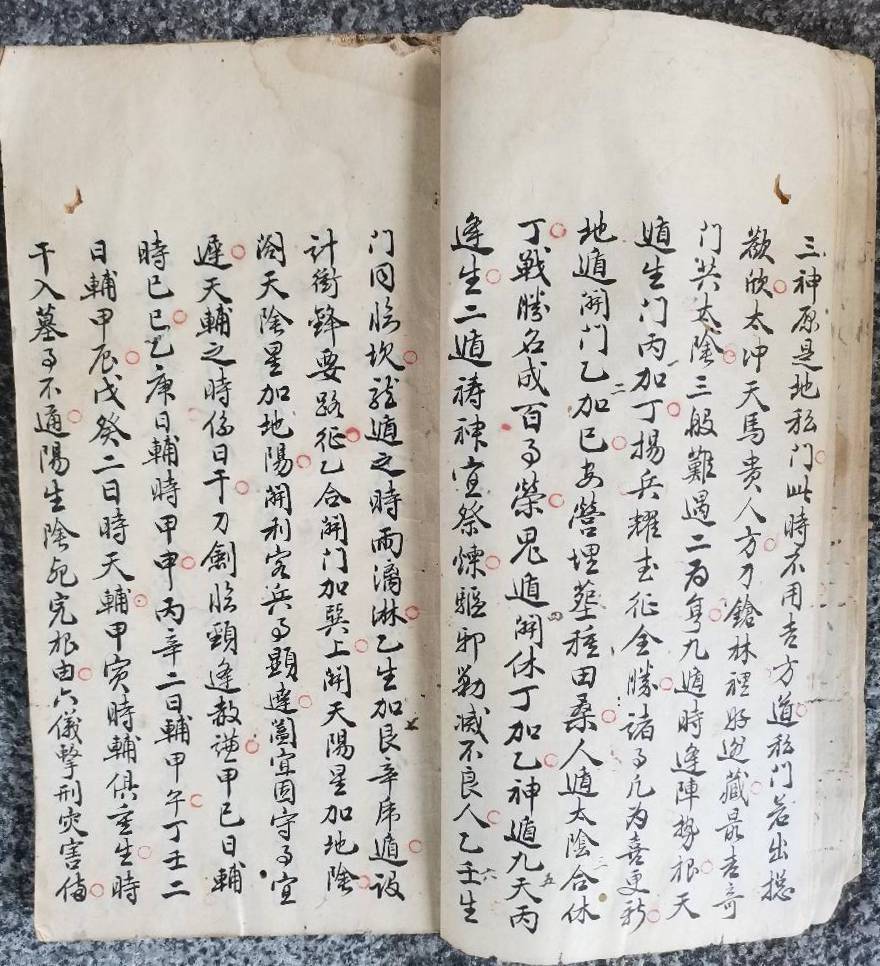 三神原是地私门此时不用吉方道私门若出揔
欲欣太冲天馬贵人方刀鎗林裡好迯藏最吉竒
门共太陰三般難遇二为身九遁時逢陣埶根天
遁生门丙加丁揚兵耀武征全勝諸事凡为喜更新
地遁開门乙加己安營埋塟種田桑人遁太陰合休
丁戰勝名成百事榮鬼遁開休丁加乙神遁九天丙
逢生二遁祷神宜祭煉驅邪勦滅不良人乙壬生
门同臨坎龍遁之時雨滴淋乙生加艮辛虎遁設
計衝鋒要路征乙合開门加巽上開天陽星加地陰
闭天陰星加地陽開利客兵事顯達闔宜固守事宜
遲天輔之時係日干刀劍臨頸逢赦謙甲己日輔
時己巳乙庚日輔時甲申丙辛二日輔甲午丁壬二
日輔甲辰戊癸二日時天輔甲寅時輔俱重生時
干入墓事不通陽生陰死究根由六儀擊刑灾害俻
二
三
四
五
六